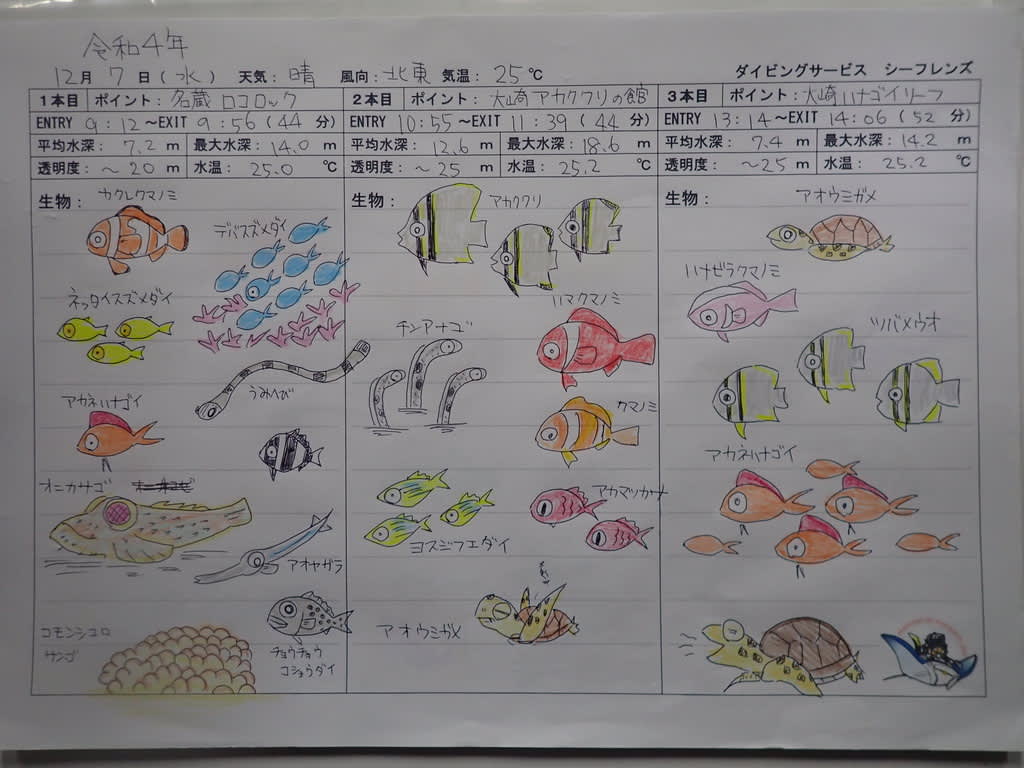 令和4年
12月 7日(水) 天気:晴 風向:北東 気温: 25℃ ダイビングサービス シーフレンズ
1本目 ポイント:名蔵 ロコロック
ENTRY 9:12~EXIT 9:56(44分)
平均水深: 7.2 m 最大水深: 14.0 m
透明度: ~20 m 水温: 25.0 ℃
生物:
カクレクマノミ
デバスズメダイ
ネッタイスズメダイ
うみへび
アカネハナゴイ
オニカサゴ
アオヤガラ
コモンシコロ
サンゴ
チョウチョウ
コショウダイ
2本目 ポイント:大崎アカククリの館
ENTRY 10:55~EXIT 11:39(44分)
平均水深: 12.6 m 最大水深: 18.6 m
透明度: ~25 m 水温: 25.2 ℃
生物:
アカククリ
ハマクマノミ
チンアナゴ
クマノミ
アカマツカサ
ヨスジフエダイ
アオウミガメ
3本目 ポイント:大崎ハナゴイリーフ
ENTRY 13:14~EXIT 14:06(52分)
平均水深: 7.4 m 最大水深: 14.2 m
透明度: ~25 m 水温: 25.2 ℃
生物:
アオウミガメ
ハナビラクマノミ
ツバメウオ
アカネハナゴイ